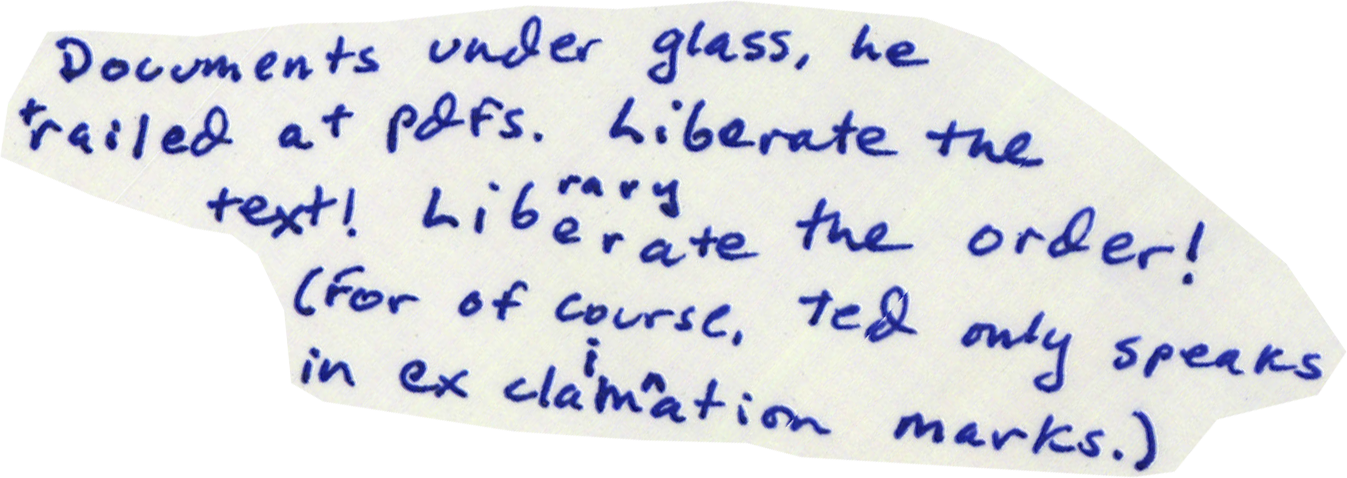 Documents under glass, he
trailed at pdfs. Liberate the
text! Liberate the order!
rary
(For of course, ted only speaks
in ex clamation marks.)
i n